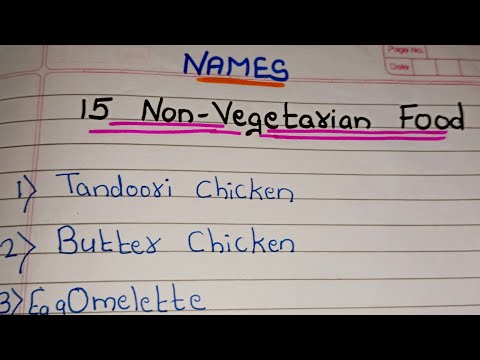 Page No.
Date
NAMES
15 Non-Vegetarian Food
1) Tandoori Chicken
2) Butter Chicken
3) Egg Omelette